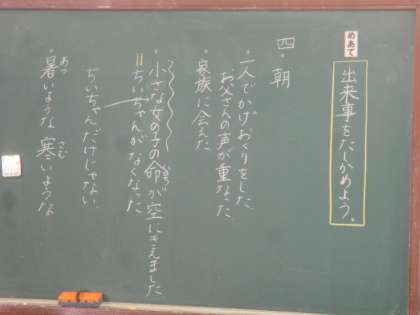 めあて
出来事をたしかめよう。
四・朝
・一人でかげおくりをした
お父さんの声が重なった
・家族に会えた
・小さな女の子の命が空にきえました
いのち
＝ちいちゃんがなくなった
ちいちゃんだけじゃない
・暑いような寒いような
あつ
さむ